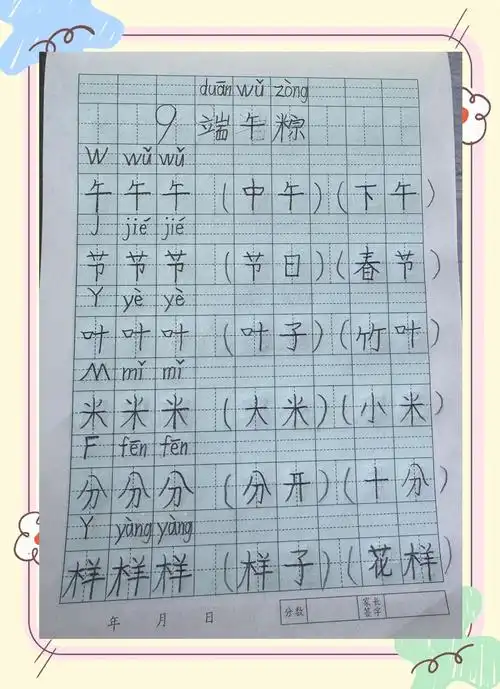 duān wǔ zòng
9 端午粽
W wǔ wǔ
午 午 午 (中午)(下午)
J jié jié
节 节 节 (节日)(春节)
Y yè yè
叶 叶 叶 (叶子)(竹叶)
M mǐ mǐ
米 米 米 (大米)(小米)
F fēn fēn
分 分 分 (分开)(十分)
Y yàng yàng
样 样 样 (样子)(花样)
年 月 日 分数 家长签字